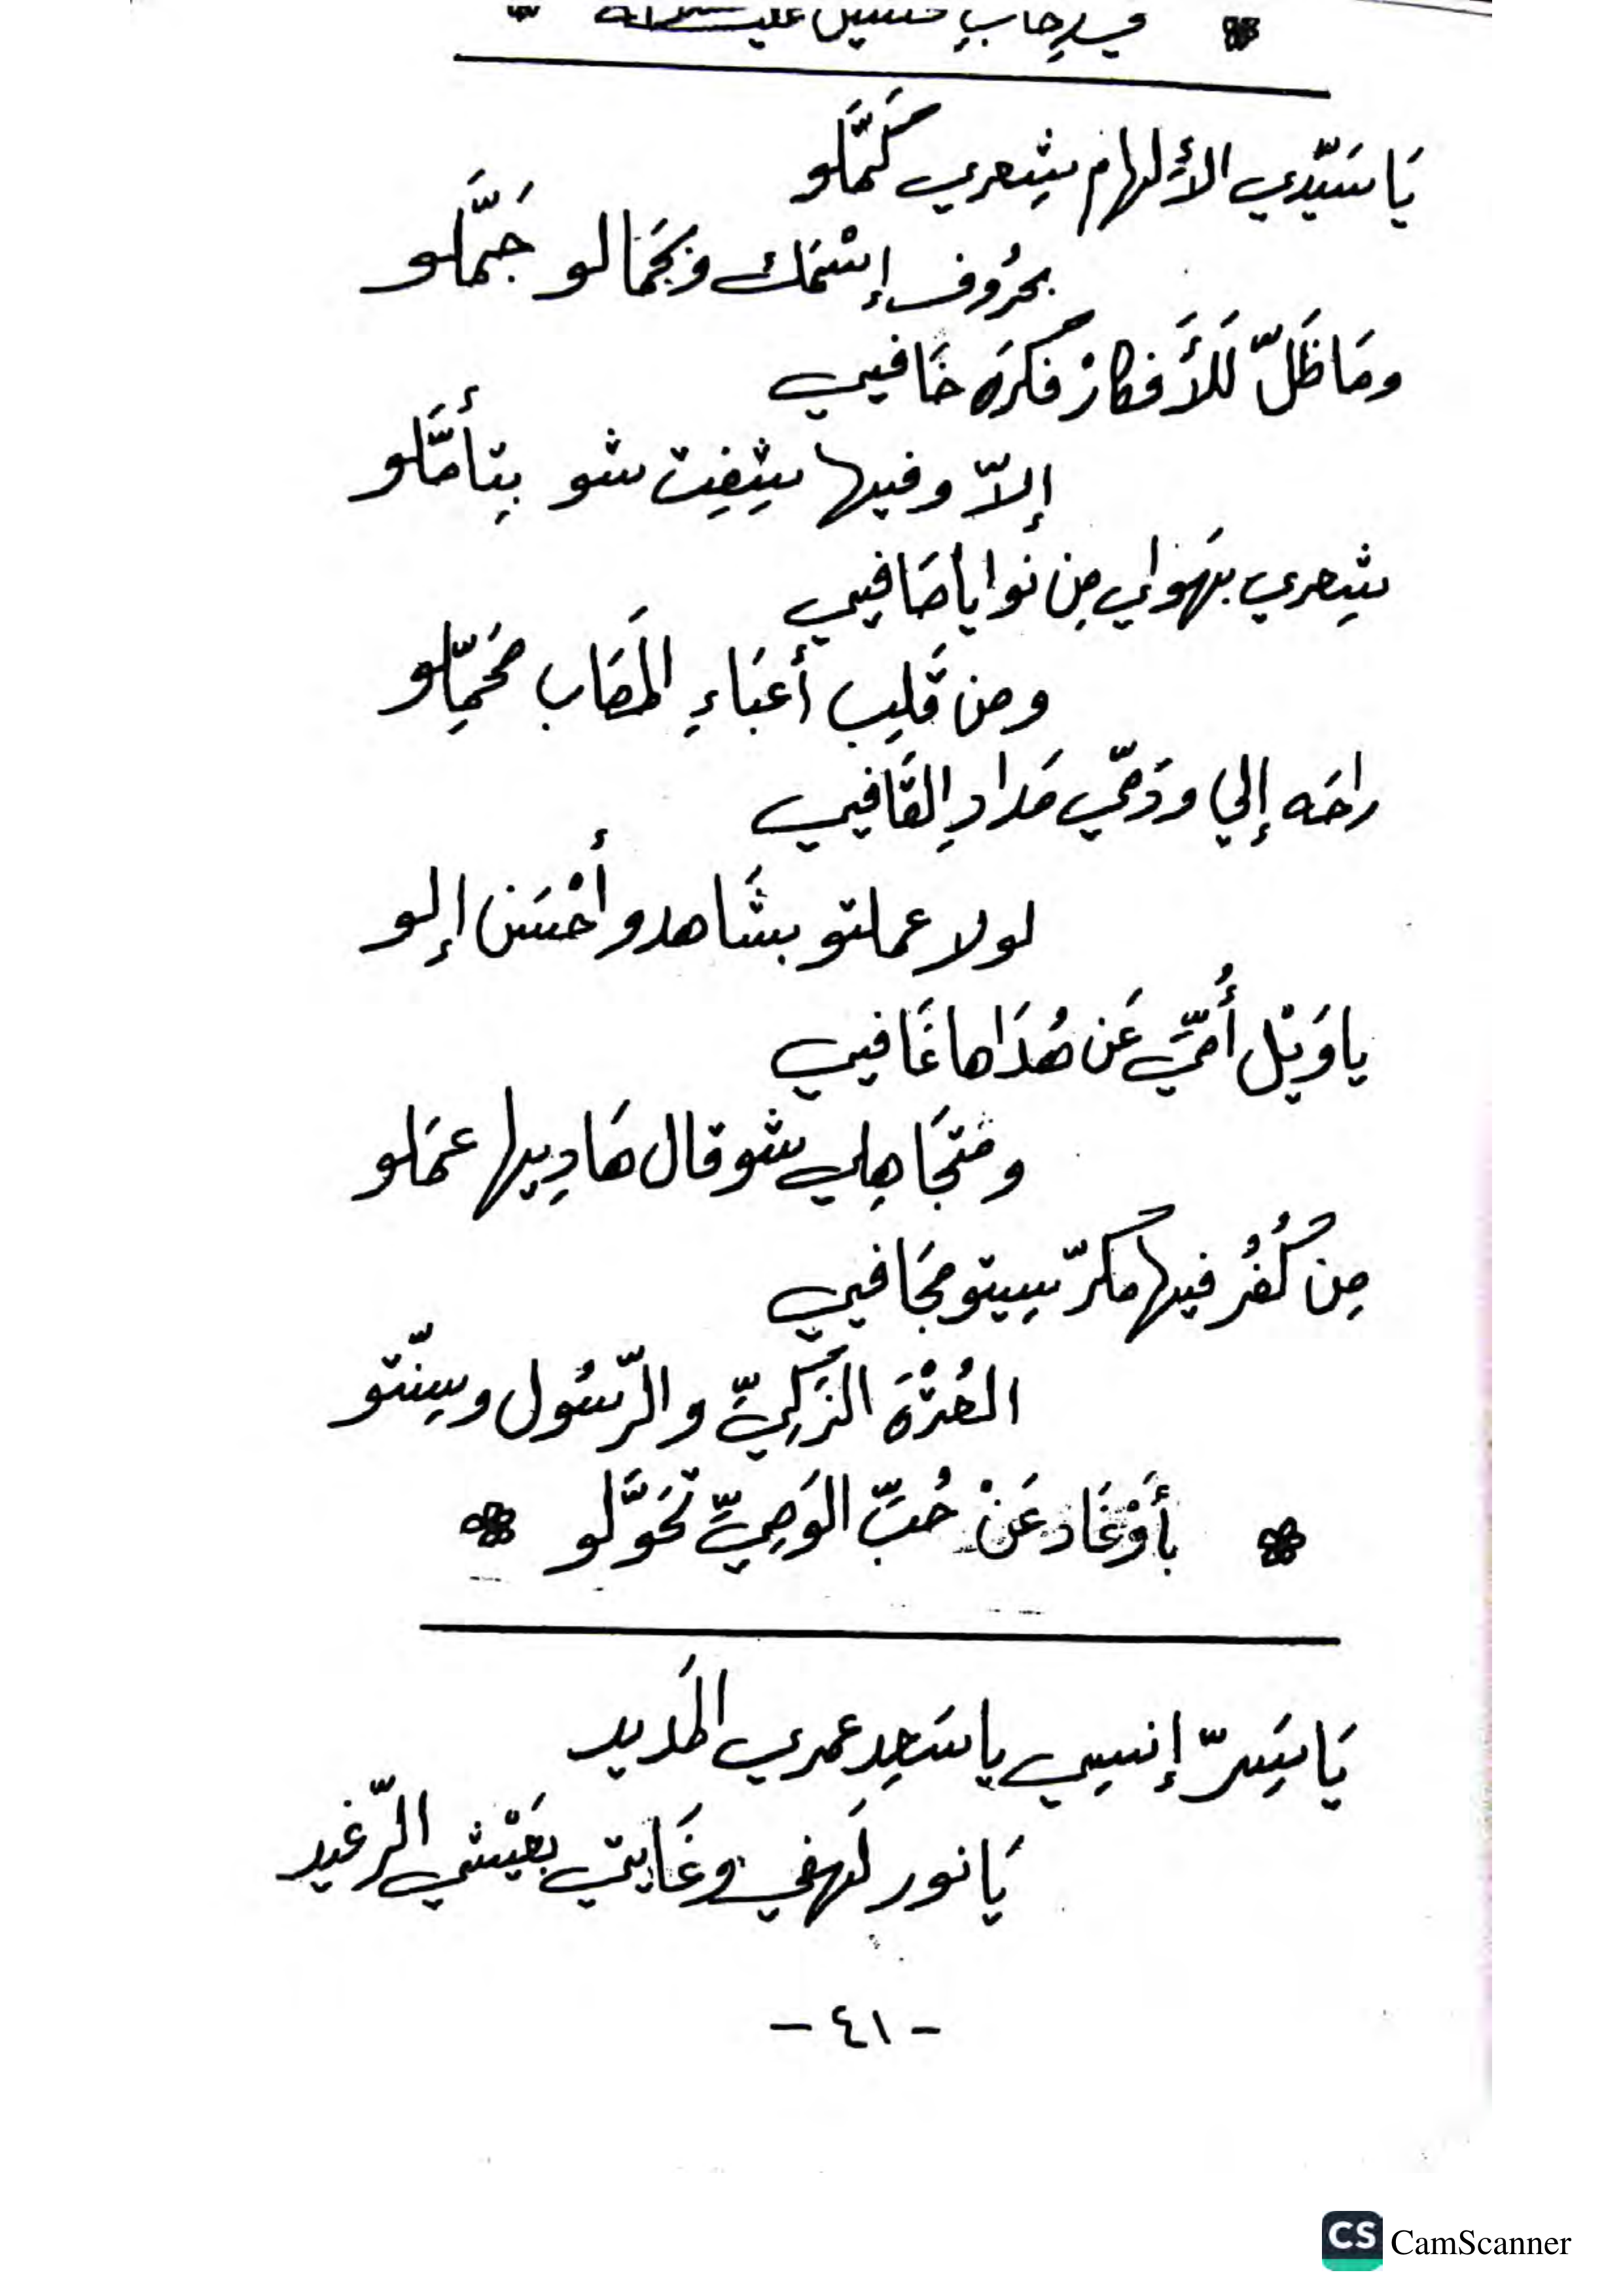 في رحاب
يَا سَيّدي الأَلهام شِعري كَمَّلو
بحرُوف إسْمَك وبجَمَالو جَمَّلو
ومَا ظَلّ لَلأَفكارْ فكرَه خَافيي
إلاّ وفيها شِفِت شو بِتأمَّلو
شِعري بهَواي مِن نوايا صَافيي
ومن قَلِب أعبَاءِ المَصَاب مْحَمِّلو
راحَه إلي ودَمّي مَدادِ القَافيي
لولا عملتو بشَاهدو أحْسَن إلو
يا وَيْل أُمّيّ عَن هُدَاها غَافيي
ومْتجَاهلِي شو قال هَادِيها عمَلو
مِن كُفُر فيها مكرّسِيتو مجَافيي
العُترْةَ الزَكِيّ والرّسُول وسِنّتو
بأَوْغَاد عَنْ حُبّ الوَصِيّ تحَوَّلو
يَا سَرّ إنسيي يا سَعِد عمري المَديد
يَا نور لَهفي وغَايتي بعَيْشي الرّغيد
- ٤١ -
CS CamScanner